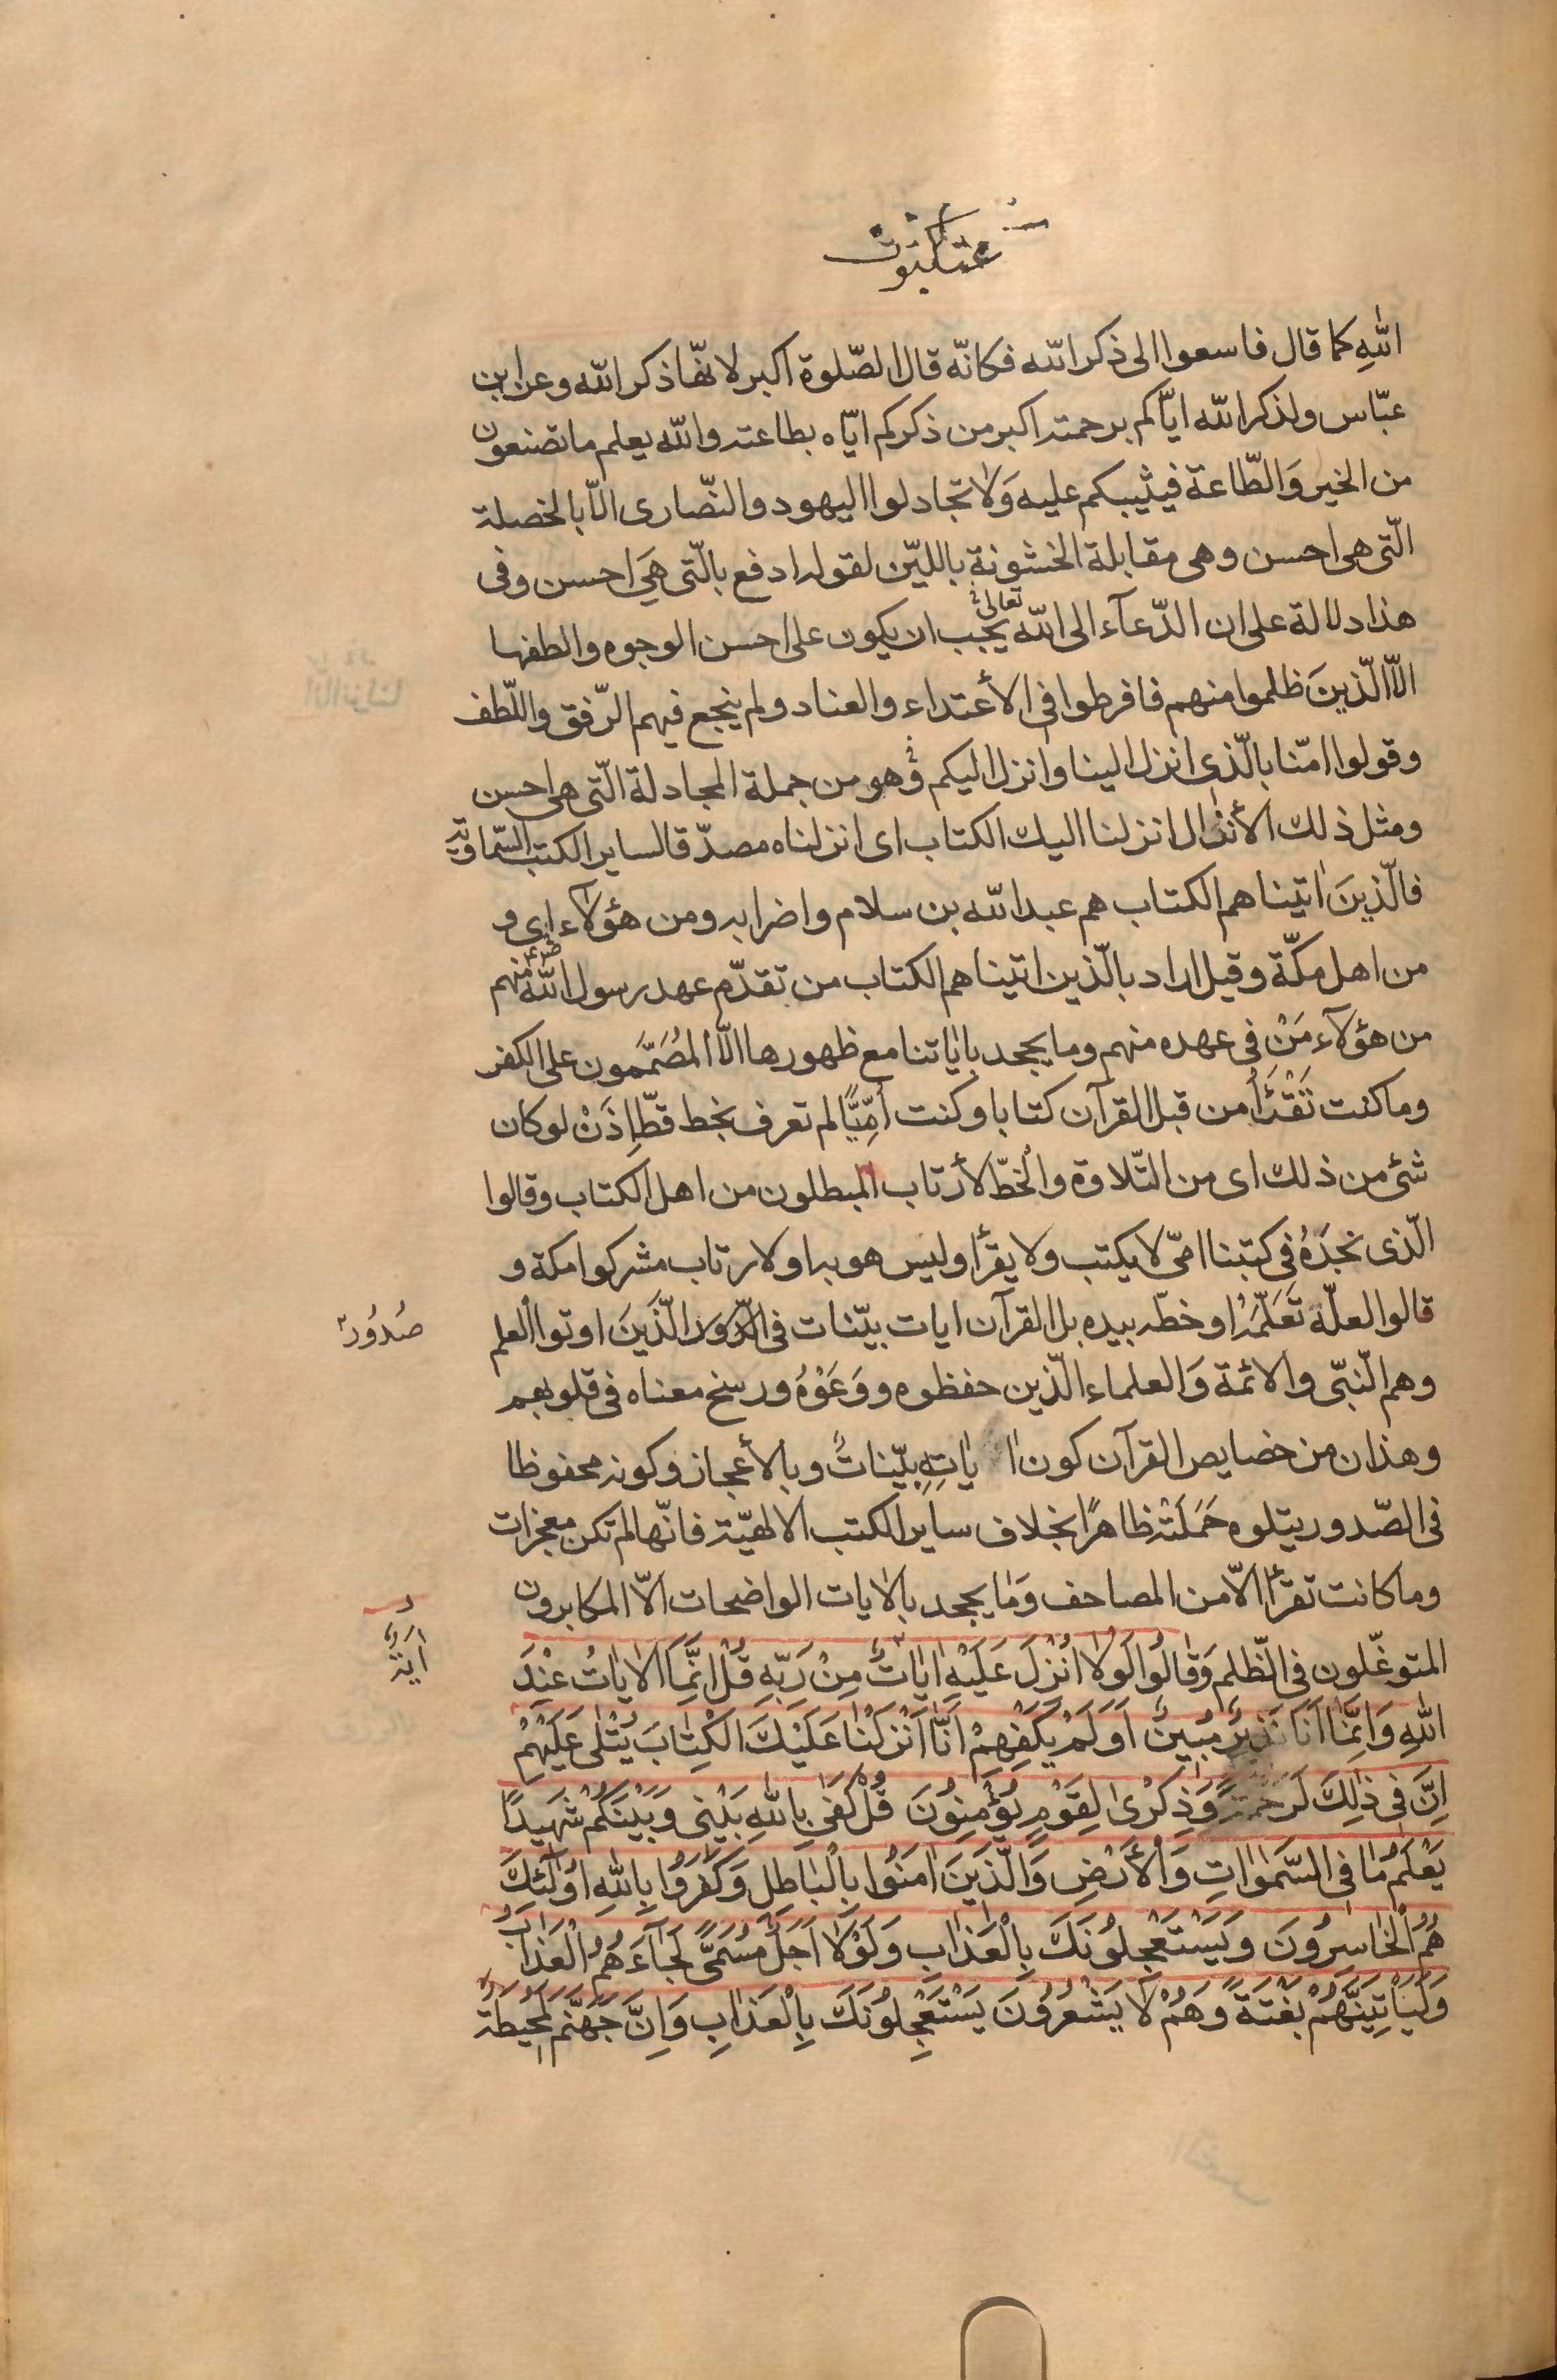 عنكبوت
اللهِ كما قال فاسعوا الى ذكر الله فكانّه قال الصّلوة اكبر لانّها ذكر الله وعن ابن
عبّاس ولذكر الله ايّاكم برحمته اكبر من ذكركم ايّاه بطاعته والله يعلم ما تصنعون
من الخير وَالطّاعة فيثيبكم عليه وَلا تجادلوا اليهود والنّصارى الّا بالخصلة
الّتى هى احسن وهى مقابلة الخشونة باللّين لقوله ادفع بالّتى هَى احسن وفى
هذا دلالة على ان الدّعآء الى الله تعالى يجب ان يكون على احسن الوجوه والطفها
الّا الّذينَ ظلموا منهم فافرطوا فى الأعتداء والعناد ولم ينجع فيهم الرّفق واللّطف
وقولوا امّنا بالّذى انزل الينا وانزل اليكم وهو من جملة المجادلة الّتى هى احسن
ومثل ذلك الأنزال انزلنا اليك الكتاب اى انزلناه مصدّقا لساير الكتب السّماويّة
فالّذينَ اتيناهم الكتاب هم عبد الله بن سلام واضرابه ومن هؤلاء اى و
من اهل مكّة وقيل اراد بالّذين اتيناهم الكتاب من تقدّم عهد رسول الله منهم
من هؤلآء مَنْ فى عهده منهم وما يجحد باياتنا مع ظهورها الّا المُصَمّمون على الكفر
وما كنت تَقْرَأ من قبل القرآن كتابا وكنت أمّيًّا لم تعرف بخط قطّ اِذَنْ لو كان
شئ من ذلك اى من التّلاوة والخطّ لأرتاب المبطلون من اهل الكتاب وقالوا
الّذى نجدَهُ فى كتبنا امّى لا يكتب ولا يقرأ وليس هو به او لارتاب مشركوا مكة و
قالوا لعلّه تَعَلّمَهُ او خطّه بيده بل القرآن ايات بيّنات فى الّذينَ اوتوا العلم
صُدُورِ
وهم النّبّى والائمّة وَالعلماء الّذين حفظوه ووَعَوْهُ ورسخ معناه فى قلوبهم
وهذان من خصايص القرآن كون اياتِهِ بيّناتٌ وبالأعجاز وكونه محفوظا
فى الصّدور يتلوه حَمَلَتْه ظاهرًا بخلاف ساير الكتب الالهيّة فانّها لم تكن معجزات
وما كانت تقرأ الّا من المصاحف وَما يجحد بالايات الواضحات الّا المكابرون
المتوغّلون فى الظّلم وَقالُوا لَولا اُنْزِلَ عَلَيْهِ اياتٌ مِنْ رَبّهِ قُلْ اِنَّمَا الاياتُ عِنْدَ
اية
اللهِ وَاِنَّمٰا اَنَا نَذيرٌ مُبينٌ اَوَلَمْ يَكْفِهِمْ اَنَّا اَنْزَلْنا عَلَيْكَ الْكِتابَ يُتْلى عَلَيْهِمْ
اِنَّ فى ذلِكَ لَرَحْمَةً وَذِكْرى لِقَوْمٍ يُؤْمِنُونَ قُلْ كَفى بِاللهِ بَيْنى وَبَيْنَكُمْ شَهيدًا
يَعْلَمُ مٰا فى السَّمٰواتِ وَالأَرْضِ وَالَّذينَ امَنُوا بِالْبٰاطِلِ وَكَفَرُوا بِاللهِ اوُلٰئِكَ
هُمُ الْخاسِرُونَ وَيَسْتَعْجِلُونَكَ بِالْعَذابِ وَلَوْلا اَجَلٌ مُسَمًّى لَجآءَهُمُ الْعَذابُ
وَلَيَاْتِيَنَّهُمْ بَغْتَةً وَهُمْ لا يَشْعُرُونَ يَسْتَعْجِلُونَكَ بِالْعَذابِ وَاِنَّ جَهَنَّمَ لَمُحيطَةٌ